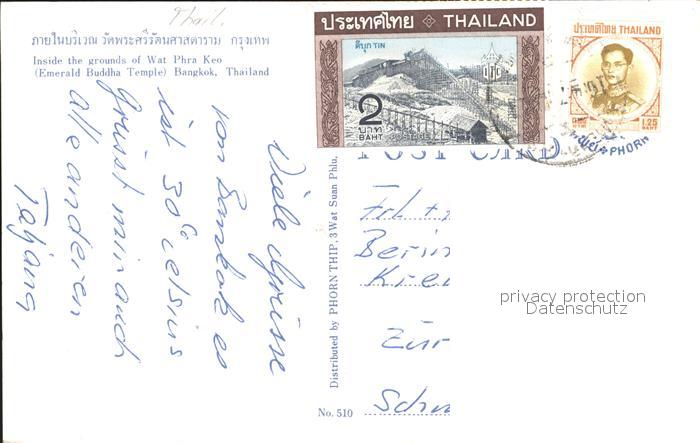 Thail.
ภายในบริเวณ วัดพระศรีรัตนศาสดาราม กรุงเทพ
Inside the grounds of Wat Phra Keo
(Emerald Buddha Temple) Bangkok, Thailand
Viele Grüsse
von Bankok es
ist 30° Celsius
Grüsst mir auch
alle anderen
ประเทศไทย THAILAND
ดีบุก TIN
2
บาท
BAHT
ประเทศไทย THAILAND
1.25
BAHT
PHORN
POST CARD
Distributed by PHORN THIP, 3 Wat Suan Phlu,
No. 510
Frl
Zür
privacy protection
Datenschutz